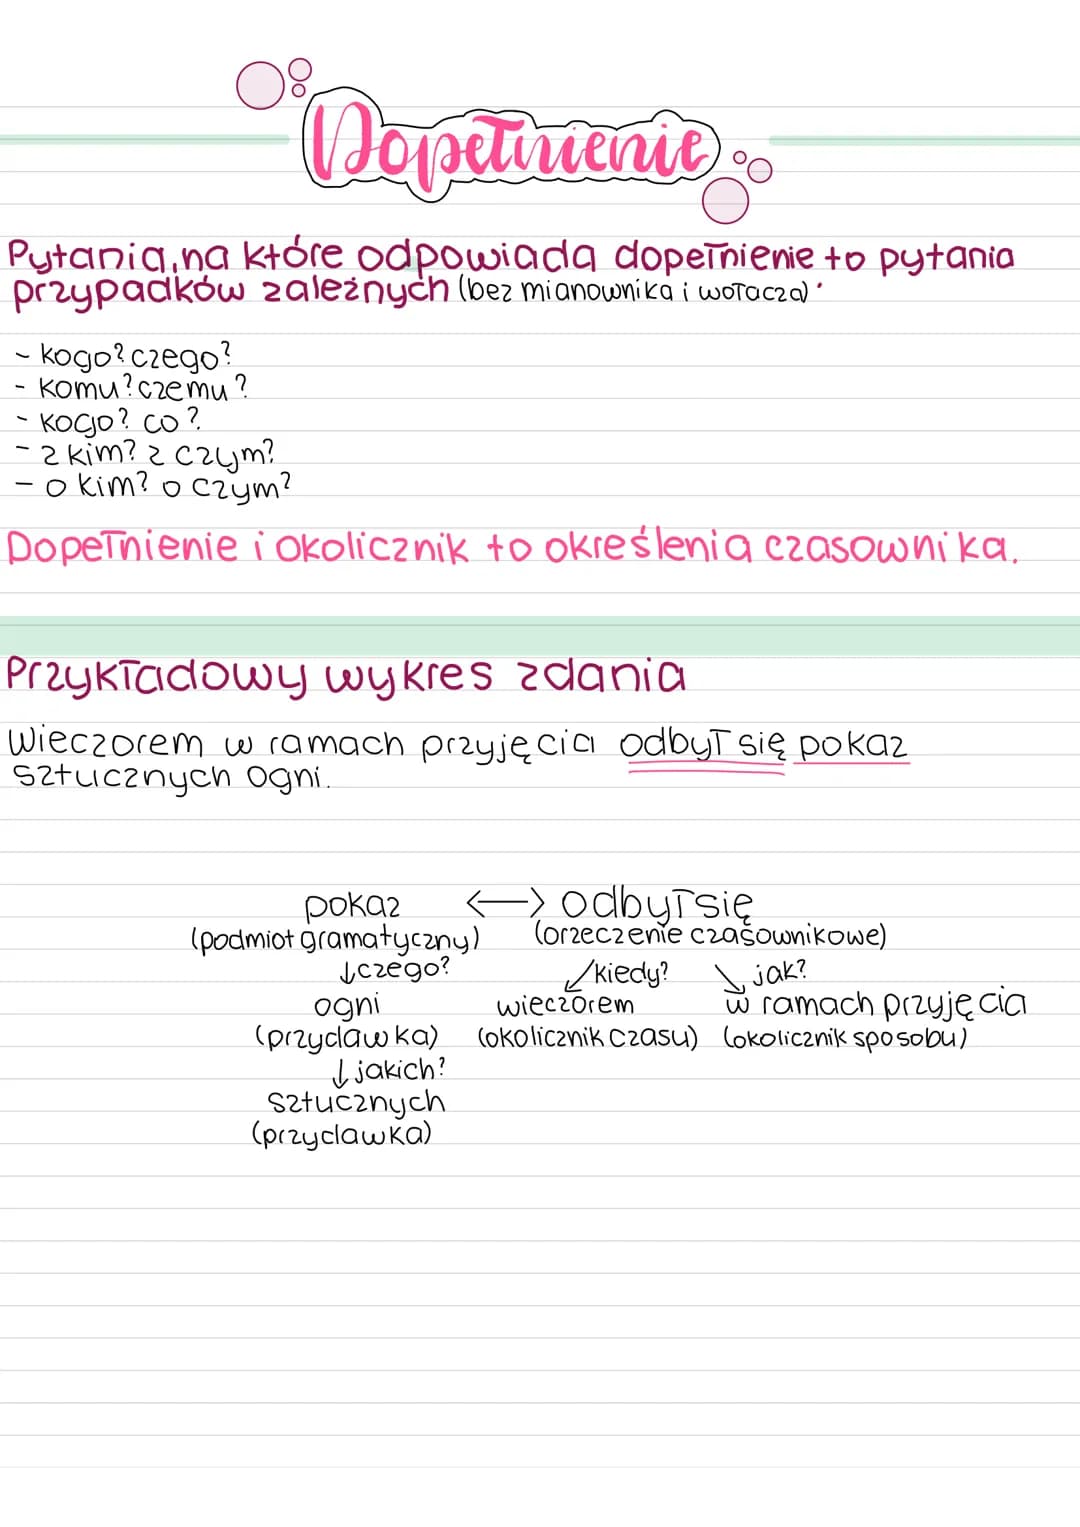 Dopełnienie
Pytania, na które odpowiada dopełnienie to pytania
przypadków zależnych (bez mianownika i wołacza).
- kogo? czego?
- komu? czemu?
- kogo? co?
- z kim? z czym?
- o kim? o czym?
Dopełnienie i okolicznik to określenia czasownika.
Przykładowy wykres zdania
Wieczorem w ramach przyjęcia odbył się pokaz
sztucznych ogni.
pokaz <-> odbył się
(podmiot gramatyczny) (orzeczenie czasownikowe)
↓czego? ↙kiedy? ↘jak?
ogni wieczorem w ramach przyjęcia
(przydawka) (okolicznik czasu) (okolicznik sposobu)
↓jakich?
sztucznych
(przydawka)